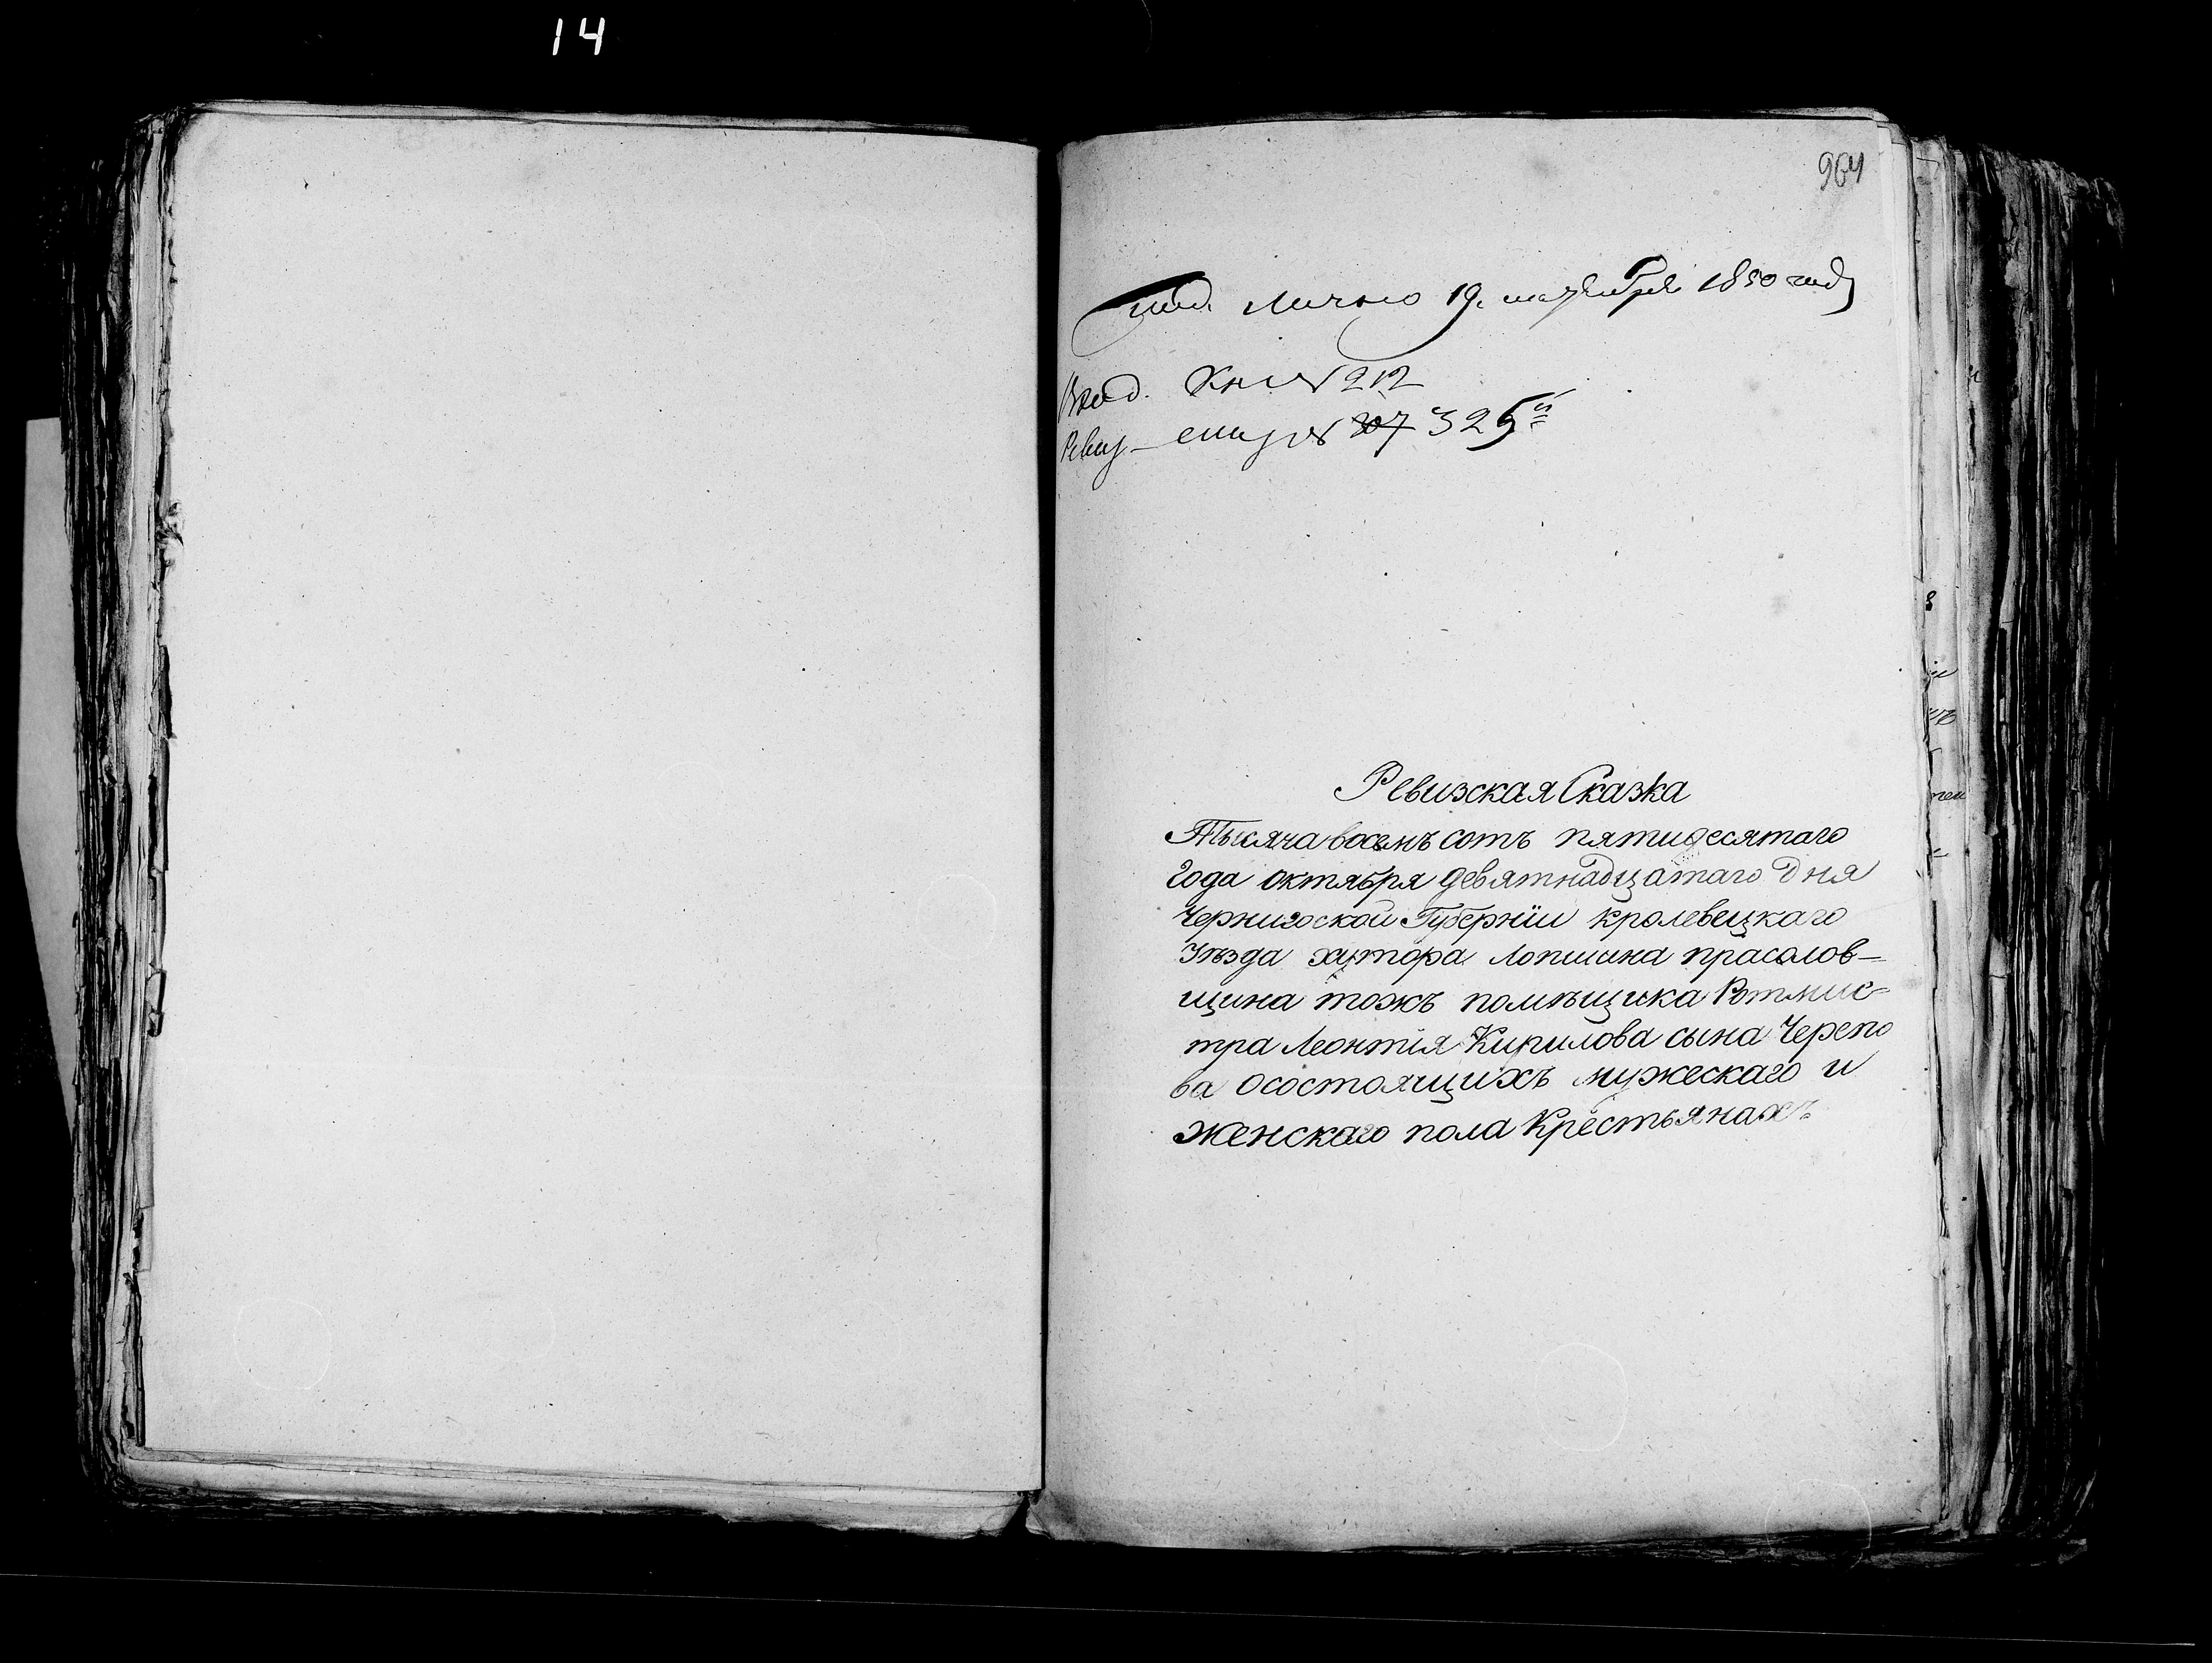 14
964
лично 19 октября 1850 года
Вход. Кни № 212
Ревиз 307 325й
Ревизская Сказка
Тысяча восемъ сотъ пятидесятаго
Года октября девятнадцатаго дня
Чернигоской Губернïи кролевецкаго
Уѣзда хутора Лопшина прасолов-
щина тожъ помѣщика Ротмис-
тра Леонтïя Кирилова сына Черепо
ва осостоящихъ мужескаго и
женскаго пола Крестьянахъ